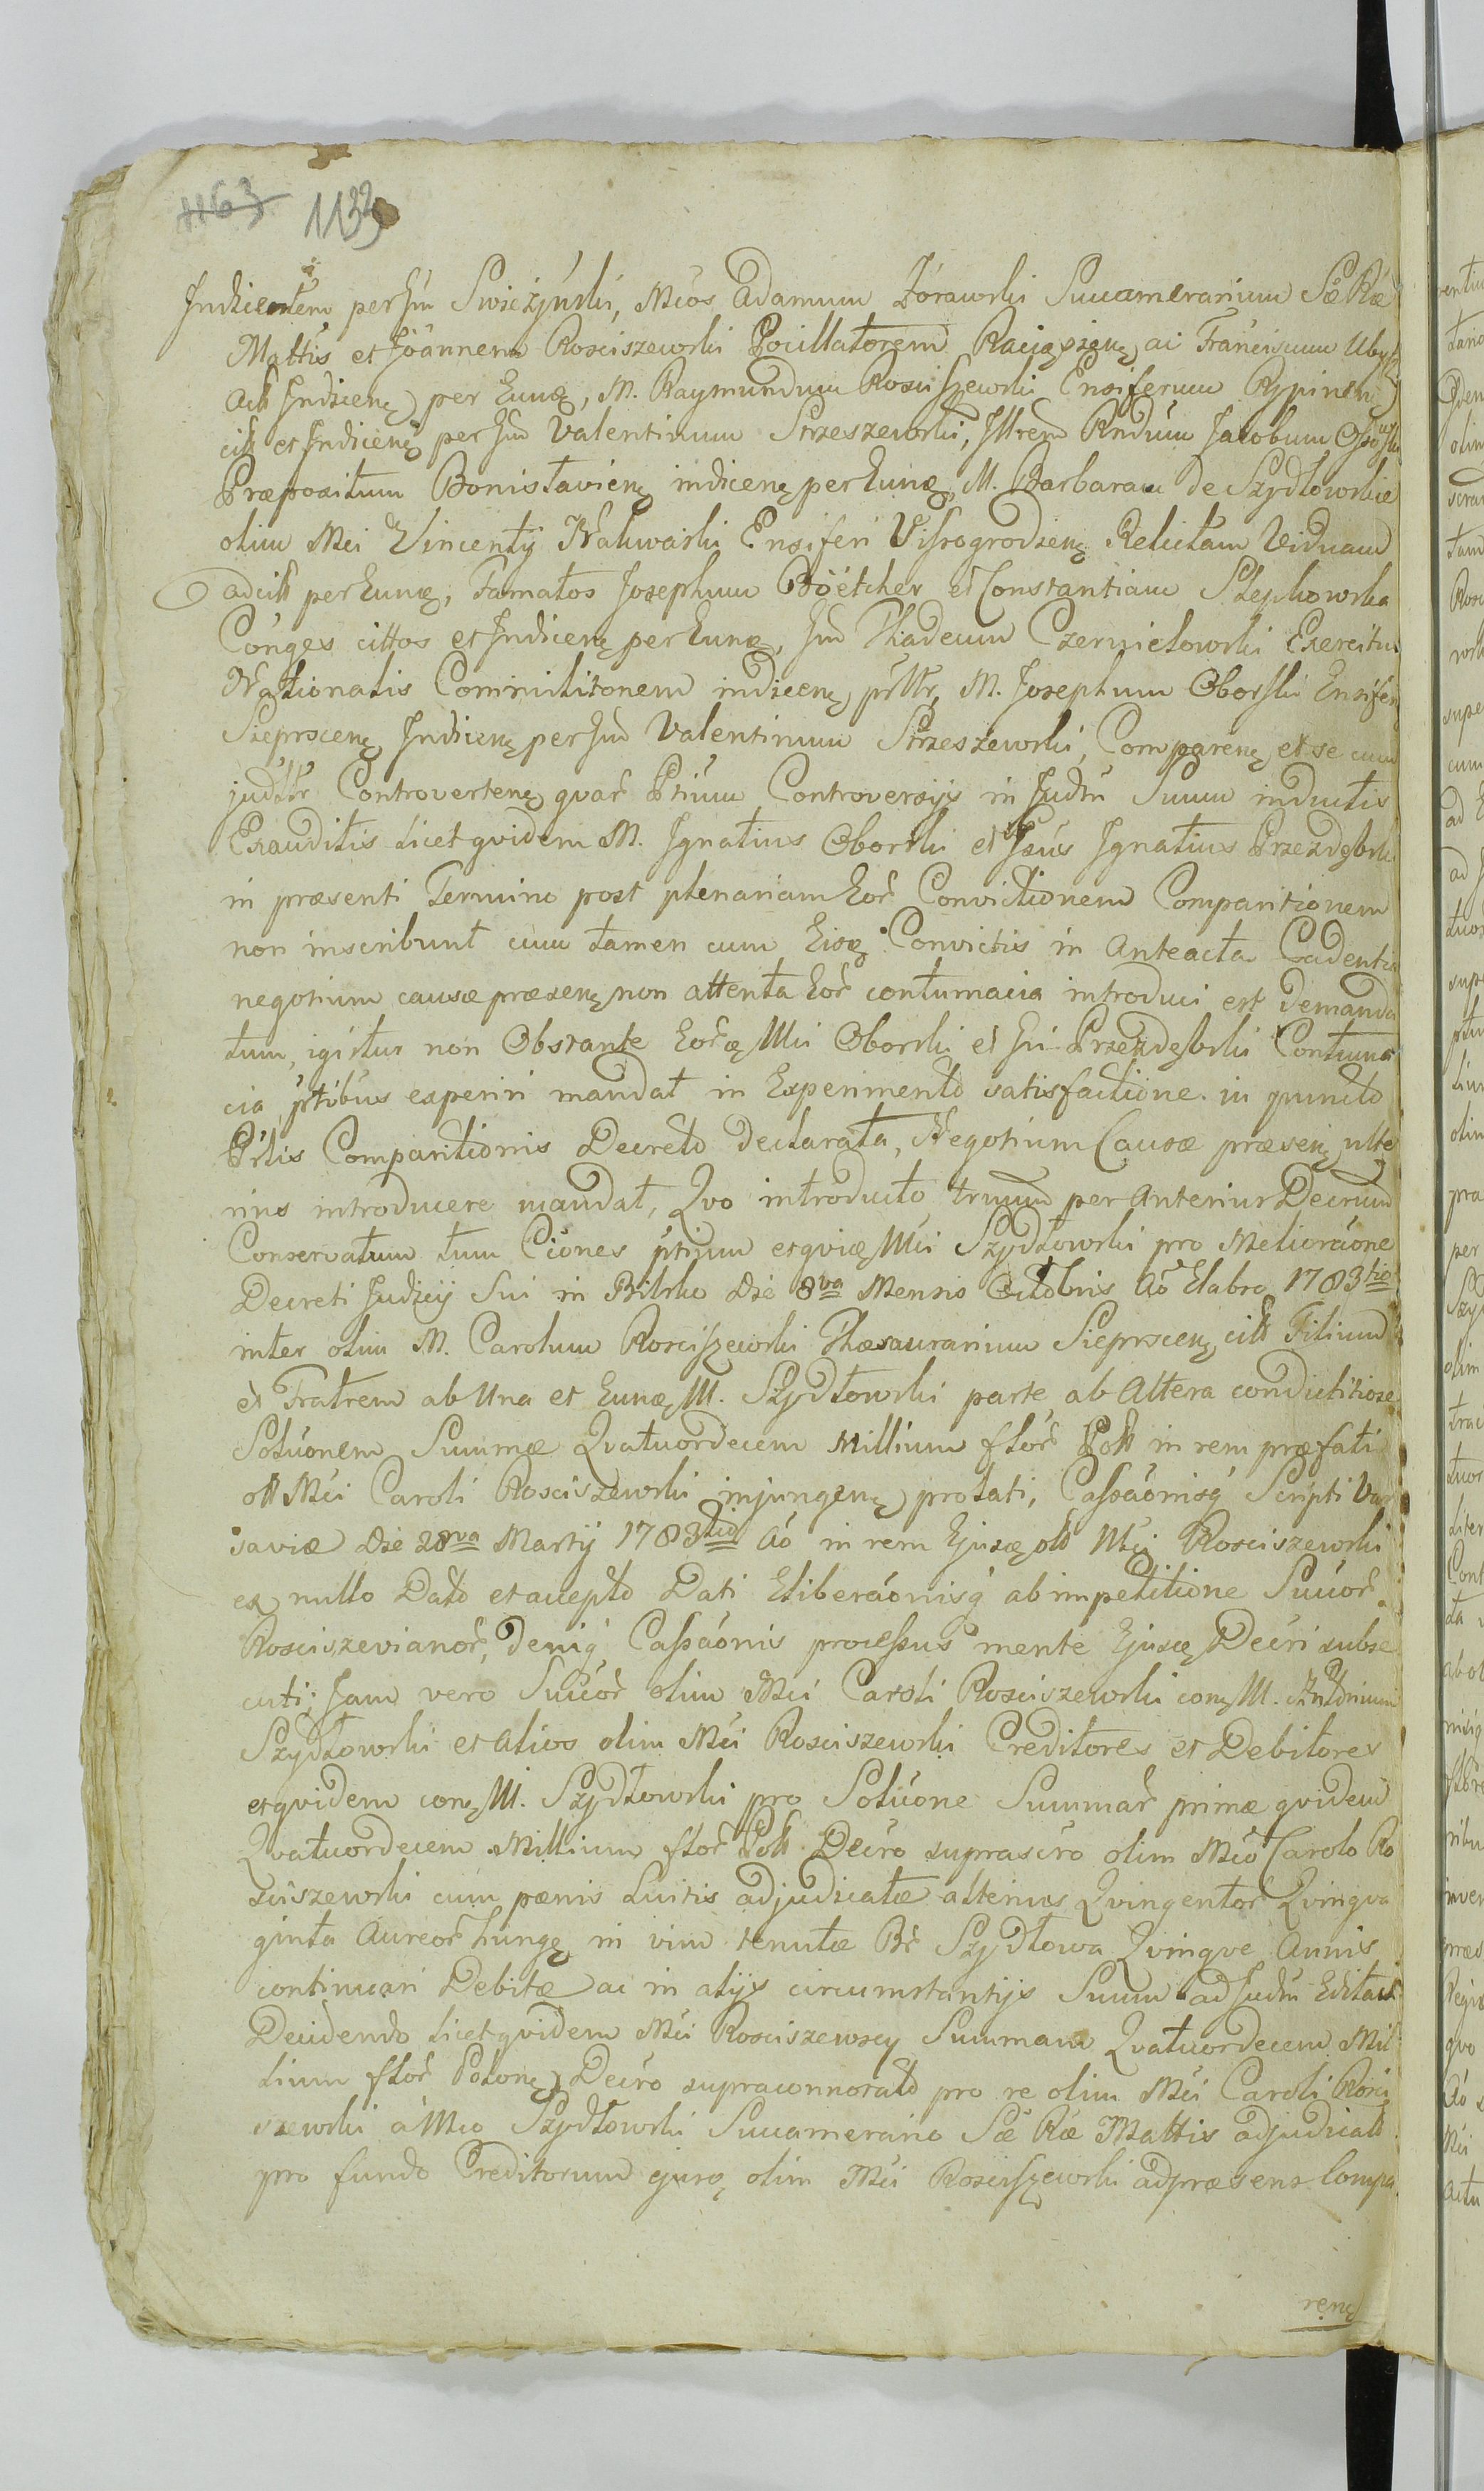 1163 1132
Indicentem per Jm̃ Swieżyński, Mcos Adamum Zórawski Succamerarium Sæ Ræ
Mattis et Joannem Rosciszewski Pocillatorem Raciążienꝫ ac Franciscum
Indicenꝫ per Eunꝫ, M. Raymundum Rosciszewski Ensiferum Rypinenꝫ
citt et Indicenꝫ per Jm̃ Valentinum Strzeszewski, Jllrem Rndum Jacobum
Præpositum Bonisłavienꝫ indicenꝫ per Eunꝫ, M. Barbaram de Szydłowskie
olim Mci Vincentij Nakwaski Ensiferi Vissogrodzienꝫ Relictam Viduam
adcitt per Eunꝫ, Famatos Josephum Böetcher et Constantiam Stępkowska
Cónges cittos et Indicenꝫ per Eunꝫ, Jm̃ Thadeum Czerwiełowski Exercitus
Nationalis Commilitonem indicenꝫ prttr, M. Josephum Oborski Ensifer
Sieprscenꝫ Indicenꝫ per Jm̃ Valentinum Strzeszewski, Comparenꝫ et se cum
judttr Controvertenꝫ quar̃ Ptium Controversijs in Judm̃ Suum inductis
Exauditis licet quidem M. Ignatius Oborski et Gsus Ignatius Przezdębski
in præsenti Termino post plenariam Eor̃ Convictionem Comparitionem
non inscribunt cum tamen cum Eisꝫ Convictis in Anteacta Cadentia
negotium causæ præsenꝫ non attenta Eor̃ contumacia introduci est demanda
tum, igitur non Obstante Eor̃ꝫ Mci Oborski et Gsi Przezdębski Contuma
cia ptibus experiri mandat in Experimento satisfactione in puncto
Prtis Comparitionis Decreto declarata, Negotium Causæ præsenꝫ ulte
rius introducere mandat, Qvo introducto trmum per Anterius Decrum
Conservatum tum Ciones ptium et quiꝫ Mci Szydłowski pro Melioraone
Decreti Judicij Sui in Bilsko die 8va Mensis Octobris Aõ Elabso 1783tio
inter olim M. Carolum Rosciszewski Thesaurarium Sieprscenꝫ citt Filium
et Fratrem ab Una et Eunꝫ M. Szydłowski parte ab Altera condictitiose
Soluonem Summæ Qvatuordecem Millium flor̃ Poll in rem præfati
oll Mci Caroli Rosciszewski injungenꝫ prolati, Cassaonisq Scripti Var
saviæ die 28va Martij 1783tio Aõ in rem Ejusꝫ oll Mci Rosciszewski
ex nullo Dato et accepto Dati Eliberaonisq ab impetitione Sucor̃
Rosciszevianor̃, deniq Cassaonis processus mente Ejusꝫ Decri subse
cuti; Jam vero Sucor̃ olim Mci Caroli Rosciszewski conꝫ M. Antonium
Szydłowski et alios olim Mci Rosciszewski Creditores et Debitores
et quidem conꝫ M. Szydłowski pro Soluone Summar̃ primæ qvidem
Qvatuordecem Millium flor̃ Poll Decro suprascro olim Mco Carolo Ro
sciszewski cum pænis Luitis adjudicatæ alterius Qvingentor̃ Qvinqva
ginta Aureor̃ hungꝫ in vim tenutæ Br̃ Szydłowa Qvinqve Annis
continuari Debitæ ac in alijs circumstantijs Suum ad Judm̃ Editam
Decidendo licet qvidem Mci Rosciszewscy Summam Qvatuordecem Mil
lium flor̃ Polonꝫ Decro supraconnotato pro re olim Mci Caroli Rosci
szewski á Mco Szydłowski Succamerario Sæ Ræ Mattis adjudicatt
pro fundo Creditorum ejusꝫ olim Mci Rosciszewski adpræsens Compa
renꝫ